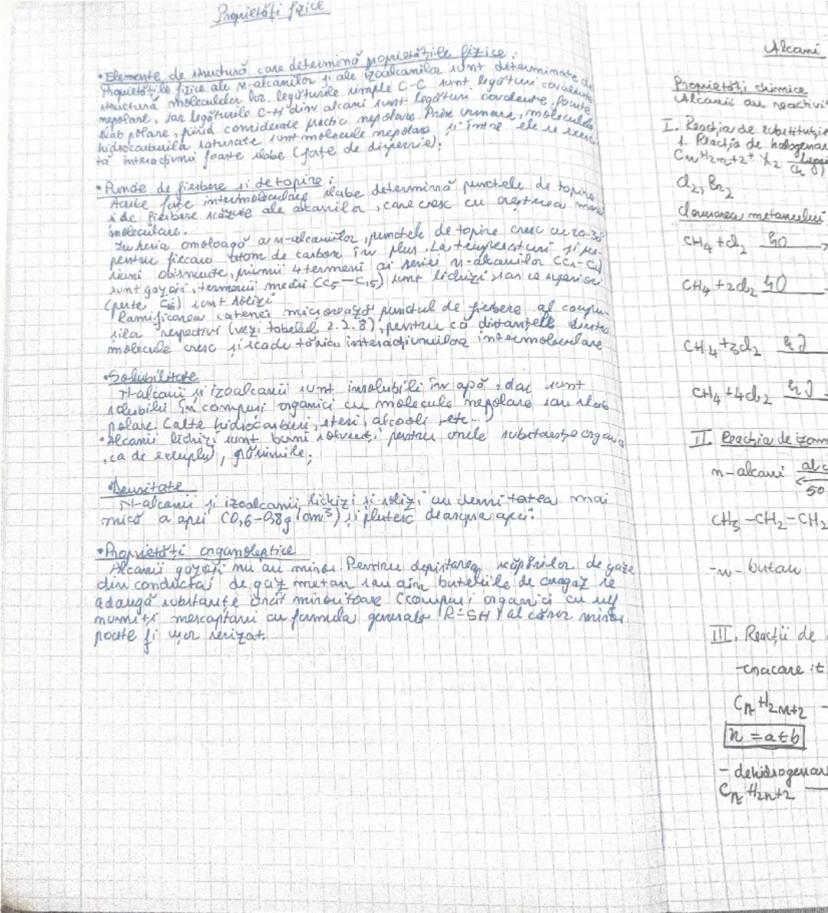 Proprietăți fizice
• Elemente de structură care determină proprietățile fizice:
Proprietățile fizice ale n-alcanilor și ale izoalcanilor sunt determinate de
structura moleculelor lor. legăturile simple C-C sunt legături covalente
nepolare, iar legăturile C-H din alcani sunt legături covalente foarte
slab polare, fiind considerate practic nepolare. Prin urmare, moleculele
hidrocarburilor saturate sunt molecule nepolare și între ele se exerci-
tă interacțiuni foarte slabe (forțe de dispersie);
• Puncte de fierbere și de topire:
Aceste forțe intermoleculare slabe determină punctele de topire
și de fierbere scăzute ale alcanilor, care cresc cu creșterea masei
moleculare.
În seria omoloagă a n-alcanilor, punctele de topire cresc cu 20-30
pentru fiecare atom de carbon în plus. La temperaturi și pre-
siuni obișnuite, primii 4 termeni ai seriei n-alcanilor (C1-C4)
sunt gazoși, termenii medii (C5-C15) sunt lichizi iar ce superiori
(peste C16) sunt solizi
Ramificarea catenei micșorează punctul de fierbere al compu-
șilor respectivi (vezi tabelul 2.2.8), pentru că distanțele dintre
molecule cresc și scade tăria interacțiunilor intermoleculare
• Solubilitate
N-alcanii și izoalcanii sunt insolubili în apă, dar sunt
solubili în compuși organici cu molecule nepolare sau slab
polare (alte hidrocarburi, eteri, alcooli etc..)
• Alcanii lichizi sunt buni solvenți pentru unele substanțe organice
, ca de exemplu, grăsimile;
• Densitate
N-alcanii și izoalcanii, lichizi și solizi, au densitatea mai
mică a apei (0,6-0,8g/cm³) și plutesc deasupra apei.
• Proprietăți organoleptice
Alcanii gazoși nu au miros. Pentru depistarea scăpărilor de gaze
din conducta de gaz metan sau din buteliile de aragaz se
adaugă substanțe urât mirositoare (compuși organici cu sulf
numiți mercaptani cu formula generală R-SH) al căror miros
poate fi ușor sesizat.
Alcani
Proprietăți chimice
Alcanii au reactivi
I. Reacția de substituție
1. Reacția de halogenar
CnH2n+2 + X2
Cl2, Br2
clorurarea metanului
CH4 + Cl2
CH4 + 2Cl2
CH4 + 3Cl2
CH4 + 4Cl2
II. Reacția de izom
n-alcani
50
CH3-CH2-CH2
-n-butan
III. Reacții de
-cracare
CnH2n+2
n = a+b
- dehidrogenar
CnH2n+2